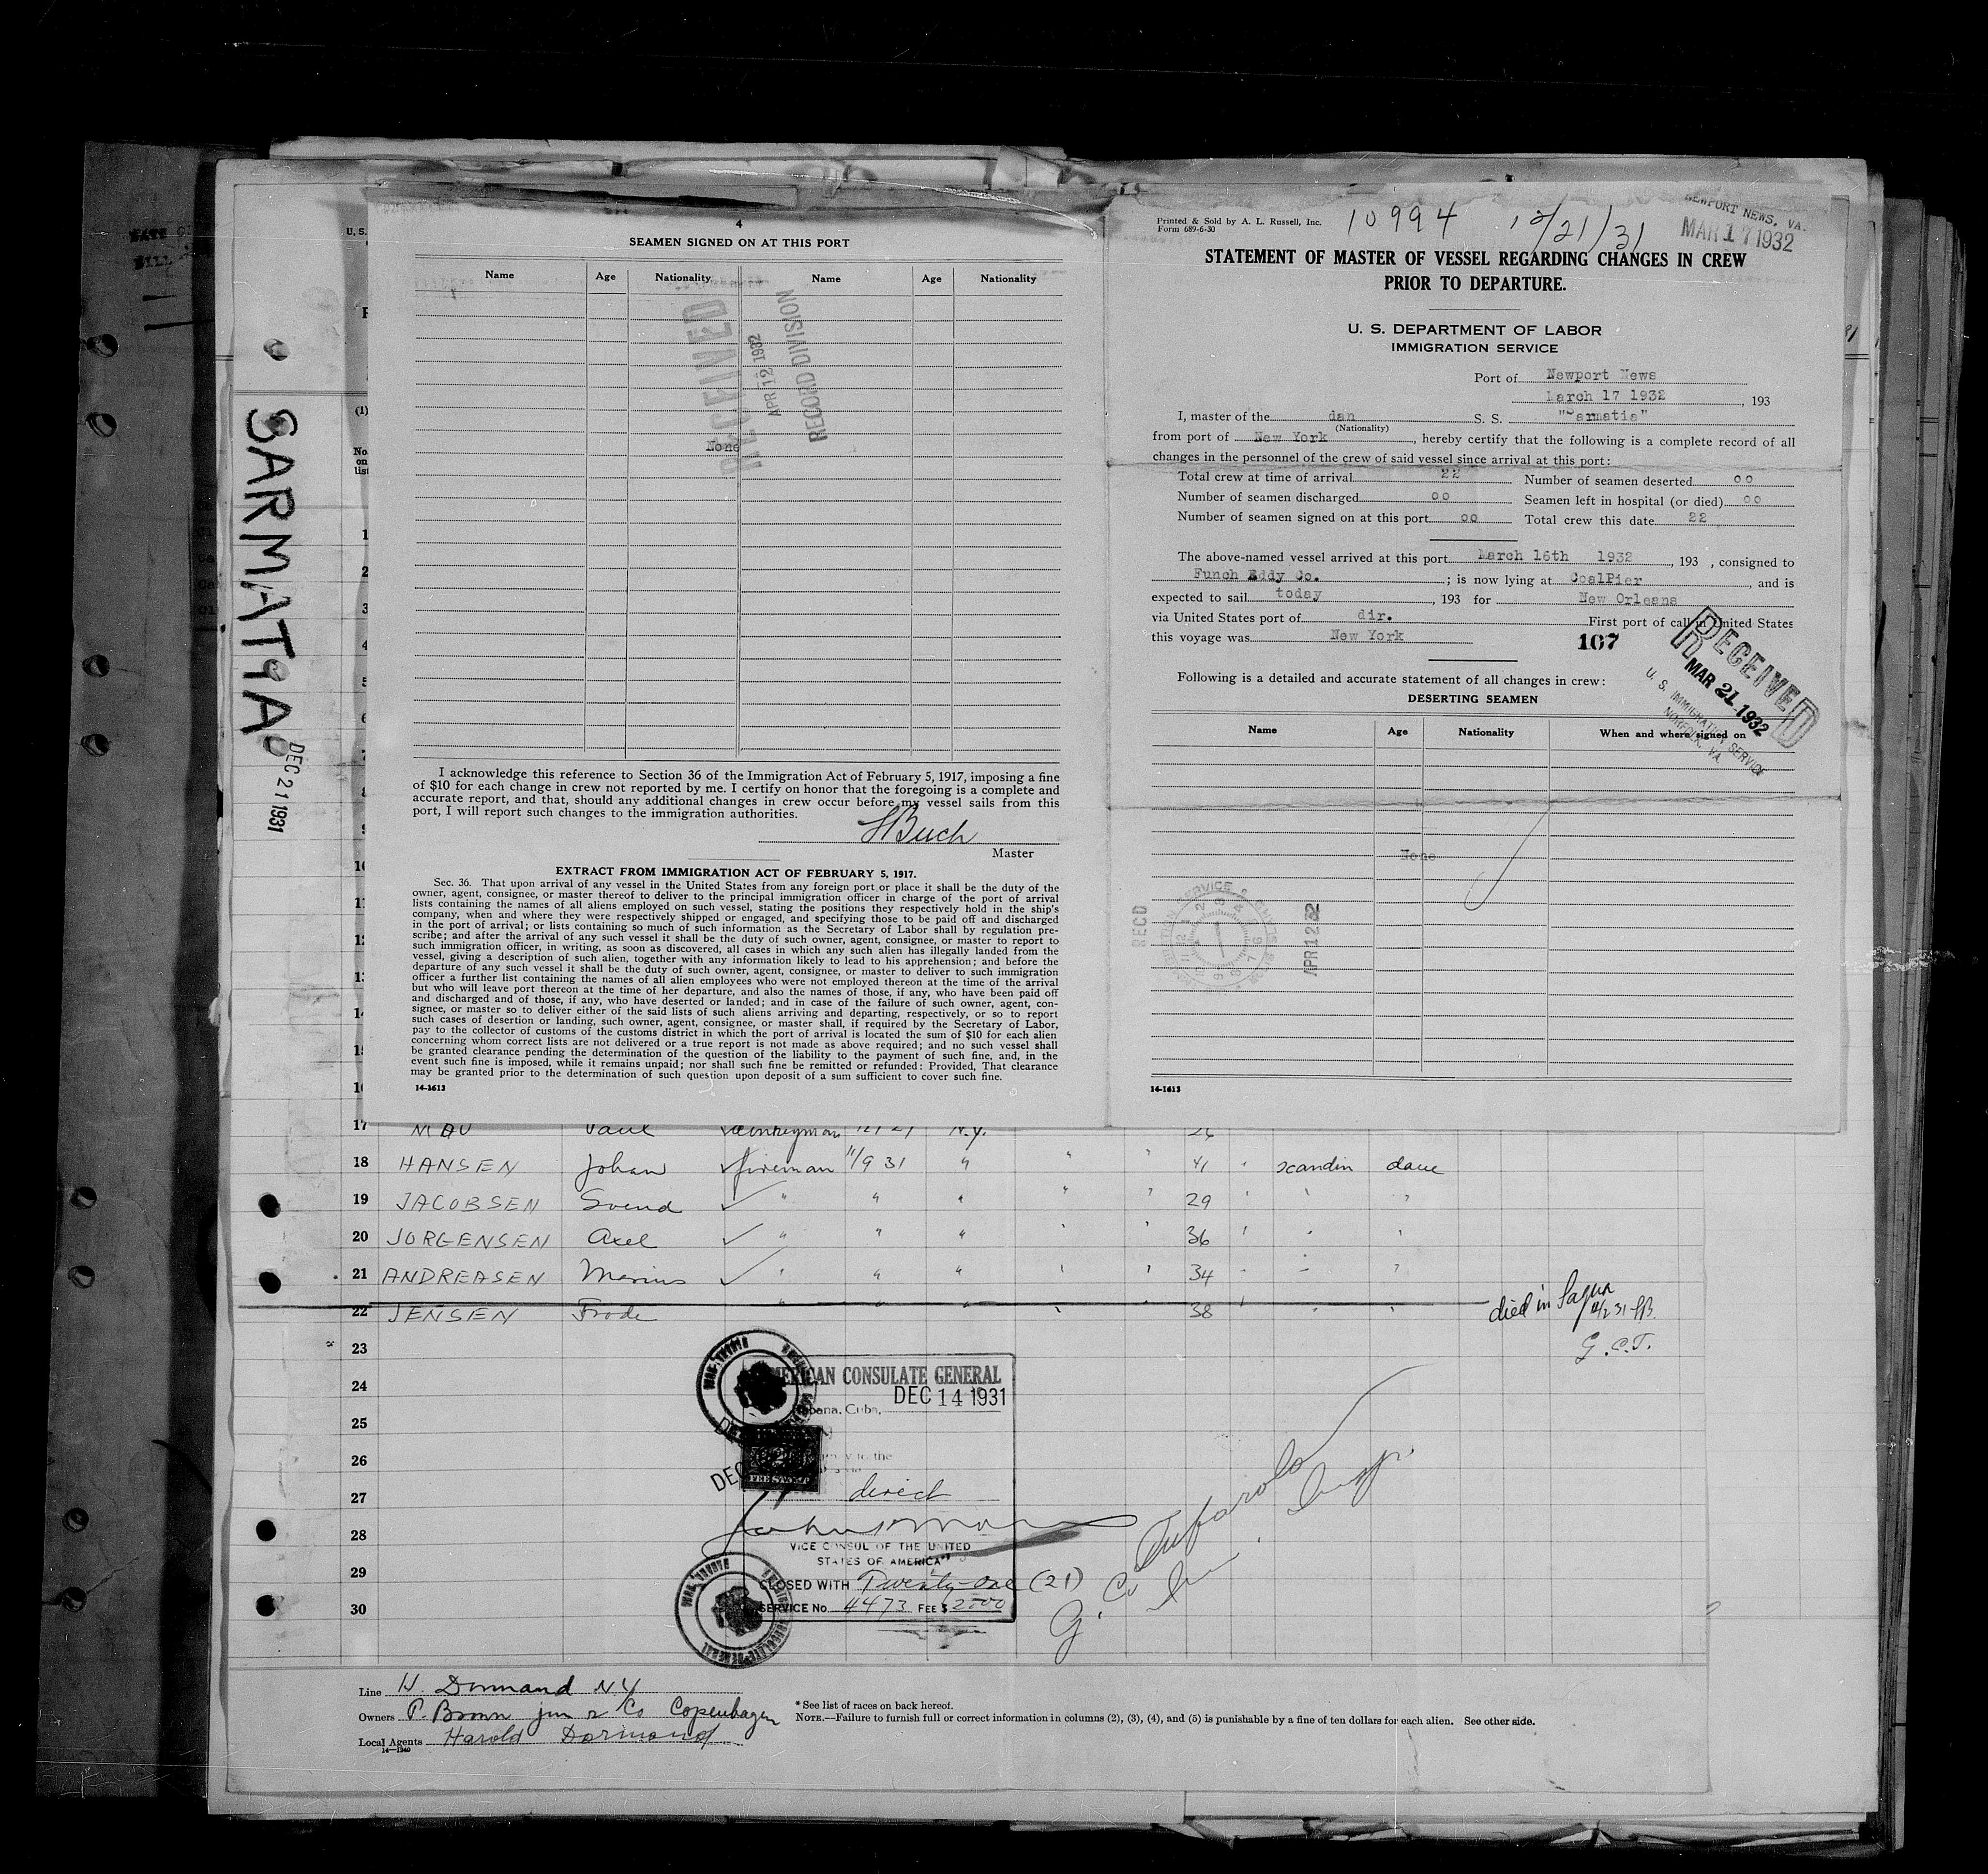 SARMATIA
DEC 21 1931
4
SEAMEN SIGNED ON AT THIS PORT
Name Age Nationality Name Age Nationality
RECEIVED
APR 12 1932
RECORD DIVISION
None
I acknowledge this reference to Section 36 of the Immigration Act of February 5, 1917, imposing a fine
of $10 for each change in crew not reported by me. I certify on honor that the foregoing is a complete and
accurate report, and that, should any additional changes in crew occur before my vessel sails from this
port, I will report such changes to the immigration authorities.
HBuch
Master
EXTRACT FROM IMMIGRATION ACT OF FEBRUARY 5, 1917.
Sec. 36. That upon arrival of any vessel in the United States from any foreign port or place it shall be the duty of the
owner, agent, consignee, or master thereof to deliver to the principal immigration officer in charge of the port of arrival
lists containing the names of all aliens employed on such vessel, stating the positions they respectively hold in the ship's
company, when and where they were respectively shipped or engaged, and specifying those to be paid off and discharged
in the port of arrival; or lists containing so much of such information as the Secretary of Labor shall by regulation pre-
scribe; and after the arrival of any such vessel it shall be the duty of such owner, agent, consignee, or master to report to
such immigration officer, in writing, as soon as discovered, all cases in which any such alien has illegally landed from the
vessel, giving a description of such alien, together with any information likely to lead to his apprehension; and before the
departure of any such vessel it shall be the duty of such owner, agent, consignee, or master to deliver to such immigration
officer a further list containing the names of all alien employees who were not employed thereon at the time of the arrival
but who will leave port thereon at the time of her departure, and also the names of those, if any, who have been paid off
and discharged and of those, if any, who have deserted or landed; and in case of the failure of such owner, agent, con-
signee, or master so to deliver either of the said lists of such aliens arriving and departing, respectively, or so to report
such cases of desertion or landing, such owner, agent, consignee, or master shall, if required by the Secretary of Labor,
pay to the collector of customs of the customs district in which the port of arrival is located the sum of $10 for each alien
concerning whom correct lists are not delivered or a true report is not made as above required; and no such vessel shall
be granted clearance pending the determination of the question of the liability to the payment of such fine, and, in the
event such fine is imposed, while it remains unpaid; nor shall such fine be remitted or refunded: Provided, That clearance
may be granted prior to the determination of such question upon deposit of a sum sufficient to cover such fine.
14-1613
Printed & Sold by A. L. Russell, Inc.
Form 689-6-30
10994 12/21/31
NEWPORT NEWS, VA.
MAR 17 1932
STATEMENT OF MASTER OF VESSEL REGARDING CHANGES IN CREW
PRIOR TO DEPARTURE.
U. S. DEPARTMENT OF LABOR
IMMIGRATION SERVICE
Port of Newport News
March 17 1932, 193
I, master of the dan S. S. "Sarmatia"
(Nationality)
from port of New York, hereby certify that the following is a complete record of all
changes in the personnel of the crew of said vessel since arrival at this port:
Total crew at time of arrival 22 Number of seamen deserted oo
Number of seamen discharged oo Seamen left in hospital (or died) oo
Number of seamen signed on at this port oo Total crew this date 22
The above-named vessel arrived at this port March 16th 1932, 193 , consigned to
Funch Eddy Co.; is now lying at CoalPier, and is
expected to sail today, 193 for New Orleans
via United States port of dir. First port of call in United States
this voyage was New York
167
RECEIVED
MAR 21 1932
U. S. IMMIGRATION SERVICE
NORFOLK, VA.
Following is a detailed and accurate statement of all changes in crew:
DESERTING SEAMEN
Name Age Nationality When and where signed on
None
RECD
APR 12 32
14-1613
17 MAU Paul Donkeyman N.Y. 26
18 HANSEN Johan fireman 11/9 31 " " " 41 " scandin dane
19 JACOBSEN Svend " " " " " 29 " " "
20 JORGENSEN Axel " " " " " 36 " " "
21 ANDREASEN Marius " " " " " 34 " " "
22 JENSEN Frode " " " " " 38 " " " died in Sagua
G.C.T.
23
24
25
26
27
28
29
30
AMERICAN CONSULATE GENERAL
DEC 14 1931
Habana, Cuba,
FEE STAMP
direct
VICE CONSUL OF THE UNITED
STATES OF AMERICA
CLOSED WITH Twenty-one (21)
SERVICE No. 4473 FEE $ 2.00
Line H. Dormand N.Y.
Owners P. Brown jun & Co Copenhagen
Local Agents Harold Dormand
14-1240
* See list of races on back hereof.
NOTE.—Failure to furnish full or correct information in columns (2), (3), (4), and (5) is punishable by a fine of ten dollars for each alien. See other side.